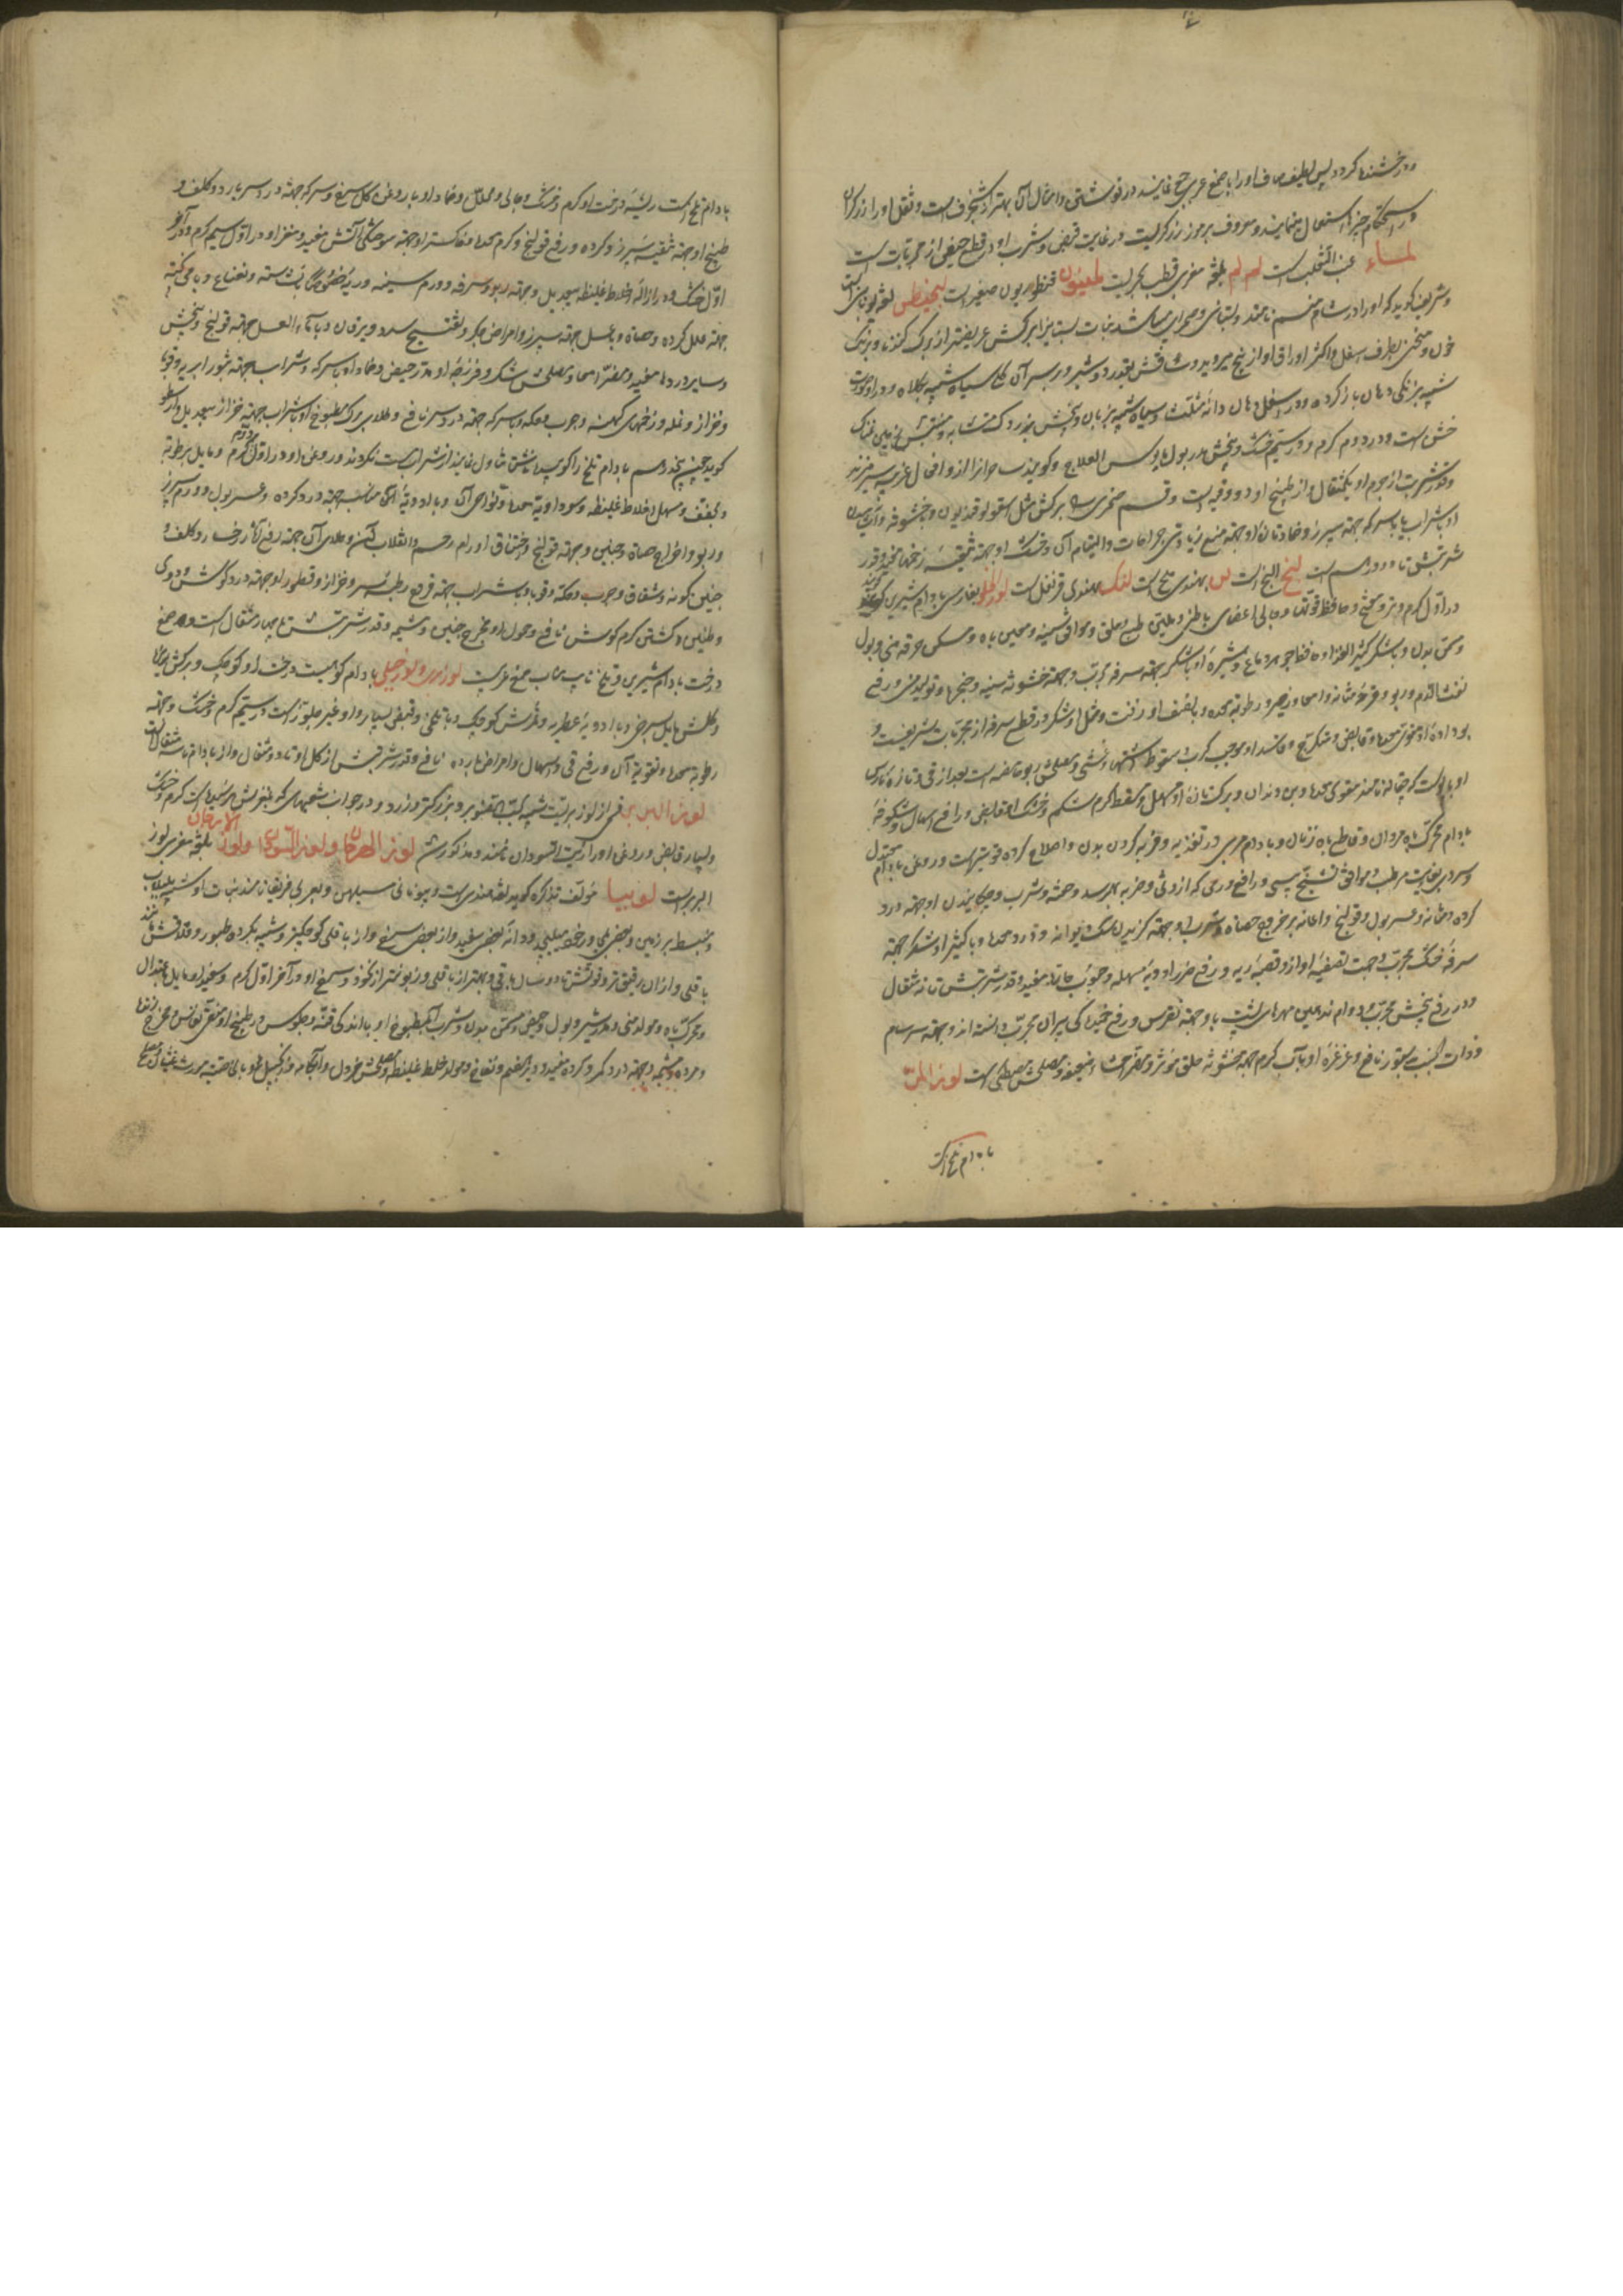 ودر خشندها کردد پس لطیف صاف اورا با صمغ عربی نمایند در نوشتن و امثال آن بهتر از شنجرف است و ثقل اورا زرکران
در استحکام چیزها استعمال مینمایند و معروف برموز زرکریست در غایت قبض و شرب او در قطع حیض از مجربات است
لمساء عنب الثعلب است لم لم بلغة مغربی قطب بحریست لمعیون قنطوریون صغیر است لنجیطس لغة یونانی است
و شریف کوید که اورا در شام خنسم نامند و لبنانی و صحرائی میباشد نباتیست برابر کش عریضتر از برک کندنا و برنک
خون و منحنی بطرف اسفل و اکثر اوراق او از بیخ میروید و ساقش بقدر دو شبر و بر سر آن کلی سیاه شبیه بکلاه و در او صورت
شبیه برنکی دهان باز کرده و در اسفل دهان دانه مثلث و سیاه شبیه بزبان و بیخش بزردک مشابه و منبتش زمین نمناک
خشن است و در دوم کرم و در سیم خشک و بیخش مدر بول و عسر العلاج و کویند
و قدر شربت از جرم او یکمثقال و از طبیخ او دو وقیه است و قسم صخری برکش مثل اسقولوقندریون و خشونة
او بشراب یا با سرکه جهة سپرز و ضماد تازه او جهة منع زیادتی جراحات و التیام آن و خشک او جهة تنقیه زخمها مفید و قدر
شربتش تا دو درهم است لنج البنج است لس بهندی است لنک بهندی قرنفل است لوز الحلو بفارسی بادام شیرین کویند
در اول کرم و تر و مفتح و حافظ قوتها و جالی اعضای باطنی و ملین طبع و حلق و موافق سینه و معین باه و مسکن حرقه منی و بول
و مسمن بدن و با شکر کثیر الغذا و حافظ جوهر دماغ و شیره او با شکر جهة سرفه مجرب و جهة خشونة سینه و حنجره و تولید منی و رفع
نفث الدم و ربو و قرحه مثانه و امعا و زحیر و رطوبة معده و با نصف او زفت و مثل او شکر در قطع سرفه از مجربات شریف است و
بو داده او مقوی معده و قابض و متکرج و فاسد او موجب کرب و سقوط اشتها و غشی و مصلحش ربوب حامضه است بعد از قی و تازه نارس
او با پوست که چقاله نامند مقوی معده و بن دندان و برک تازه او مسهل و مسقط کرم شکم و خشک او قابض و رافع اسهال و شکوفه
بادام محرک باه مردان و قاطع باه زنان و بادام مربی در تغذیه و فربه کردن بدن و اصلاح کرده قویتر است و روغن بادام معتدل
و سرد بغایت مرطب و موافق تشنج یبسی و رافع ورمی که از وثی و ضربه بهم رسد و حقنه و شرب و چکانیدن او جهة درد
کرده و مثانه و عسر بول و قولنج و اعانه بر خروج حصاة و شرب او جهة کزیدن سک دیوانه و درد معده و با کثیرا و شکر جهة
سرفه خشک مجرب و جهت تصفیه آواز و قصبه ریه و رفع ضرر ادویه مسهله و حبوب حاده مفید و قدر شربتش تا نه مثقال
و در رفع پیچش مجرب و دوام تدهین مهرهای پشت با او جهة نقرس و رفع خمیدکی پیران مجرب دانسته اند و جهة سرسام
و ذات الجنب بدستور نافع و غرغره او بآب کرم جهة خشونة حلق مؤثر و مضر احشاء ضعیفه و مصلحش مصطکی است لوز المر
بادام تلخ است
بادام تلخ است ریشه درخت او کرم و خشک و جالی و محلل و ضماد او با روغن کل سرخ و سرکه جهة درد سر بارد و کلف و
طبیخ او جهة تنقیه سپرز و کرده و رفع قولنج و کرم معده و خاکستر او جهة سوختکی آتش مفید و مغز او در اول سیم کرم و در آخر
اول خشک و در ازاله اخلاط غلیظه بیعدیل و جهة ربو و سرفه و ورم سینه و ریه خصوصا با نشاسته و نعناع و با می پخته
جهة علل کرده و حصاة و با عسل جهة سپرز و امراض جکر و تفتیح سدد و یرقان و با ماء العسل جهة قولنج و پیچش
و سایر دردها مفید و مضر امعا و مصلحش شکر و فرزجه او مدر حیض و ضماد او با سرکه و شراب جهة بثور ابریه و قوبا
و حزاز و نمله و زخمهای کهنه و جرب و حکه و با سرکه جهة درد سر نافع و طلای برک مطبوخ او با شراب جهة حزاز بیعدیل و ارسطو
کوید چون پنجدرهم بادام تلخ را کوبیده ناشتا تناول نمایند از شراب مست نکردند و روغن او در اول دوم کرم و مایل برطوبة
و مجفف و مسهل اخلاط غلیظه و سوداویة معده و نواحی آن و با ادویه مناسبه جهة درد کرده و عسر بول و ورم سپرز
و ربو و اخراج حصاة و جنین و جهة قولنج و اختناق و اورام رحم و انقلاب آن و طلای آن جهة رفع آثار رخسار و کلف و
چین کونه و شقاق و جرب و حکه و قوبا و با شراب جهة قروح رطبه سر و حزاز و قطور او جهة درد کوش و دوی
و طنین و کشتن کرم کوش نافع و حمول او مخرج جنین و مشیمه و قدر شربتش تا چهار مثقال است و صمغ
درخت بادام شیرین و تلخ نایب مناب صمغ عربیست لوز مر و لوز جبلی بادام کوهیست درخت او کوچک و برکش ریزه
و کلش مایل بسرخی و با ادویه عطریه و ثمرش کوچک و با تلخی و قبض بسیار و او غیر جلوز است در سیم کرم و خشک و جهة
رطوبة معده و تقویة آن و رفع قی و اسهال و امراض بارده نافع و قدر شربتش از کل او تا دو مثقال و از بادام تا سه مثقال است
لوز البربری قسمی از لوز بریست شبیه بحب الصنوبر و بزرکتر و زرد و در جوانب شعبهای که مغزش سیاه است کرم و خشک
و بسیار قابض و روغن اورا زیت السودان نامند و مذکور شد لوز الهرجان و لوز السودان و لوز الارجان بلغة مغربی لوز
البربر است لوبیا مؤلف تذکره کوید لغة هندی است و بیونانی سیلهن و بعربی فریقا نامند نبات او شبیه بلبلاب
و منبسط بر زمین و بعضی بر درخت میپیچد و دانه بعضی سفید و از بعضی سرخ و از باقلی کوچکتر و شبیه بکرده طیور و قوتش مانند
باقلی و از آن رقیقتر و قوتش تا دو سال باقی و بهتر از باقلی و زبونتر از نخود و سرخ او در آخر اول کرم و سفید او مایل باعتدال
و محرک باه و مولد منی و مدر شیر و بول و حیض و مسمن بدن و شرب آب مطبوخ او با اندکی قنه و جلوس در طبیخ او منقی نفاس و مخرج جنین زنده
و مرده و مشیمه و جهة درد کمر و کرده مفید و دیر هضم و نفاخ و مولد خلط غلیظ و مصلحش خردل و آبکامه و زنجبیل و